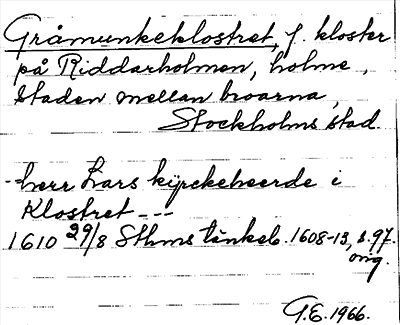 Gråmunkeklostret, f. kloster
på Riddarholmen, holme,
Staden mellan broarna,
Stockholms stad
--herr Lars kyrckeheerde i
Klostret ---
1610 29/8 Sthms tänkeb. 1608-13, s. 97.
orig.
G.E. 1966.